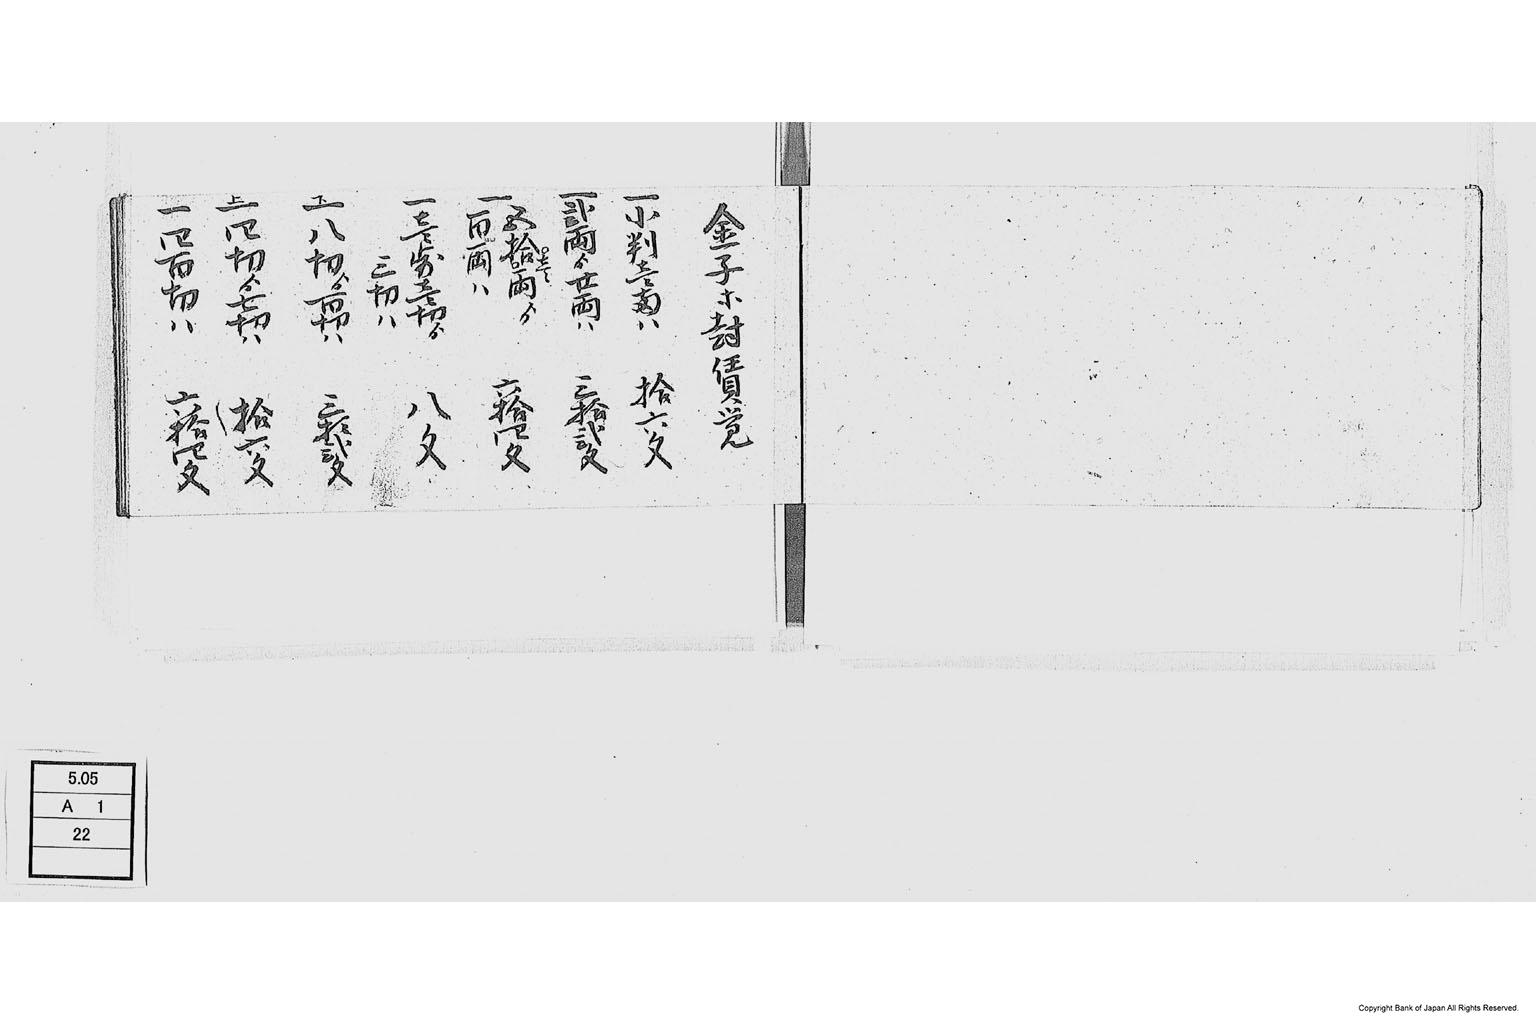 金子ホ封賃覚
一小判壱両ハ　拾六文
一弐両ゟ廿両ハ　三拾弐文
一五拾両ゟ
百両ハ　六拾四文
一壱歩壱切ゟ
三切ハ　八文
下一八切ゟ百切ハ　三拾弐文
上一四切ゟ七切ハ　拾六文
一四百切ハ　六拾四文
5.05
A 1
22
Copyright Bank of Japan All Rights Reserved.